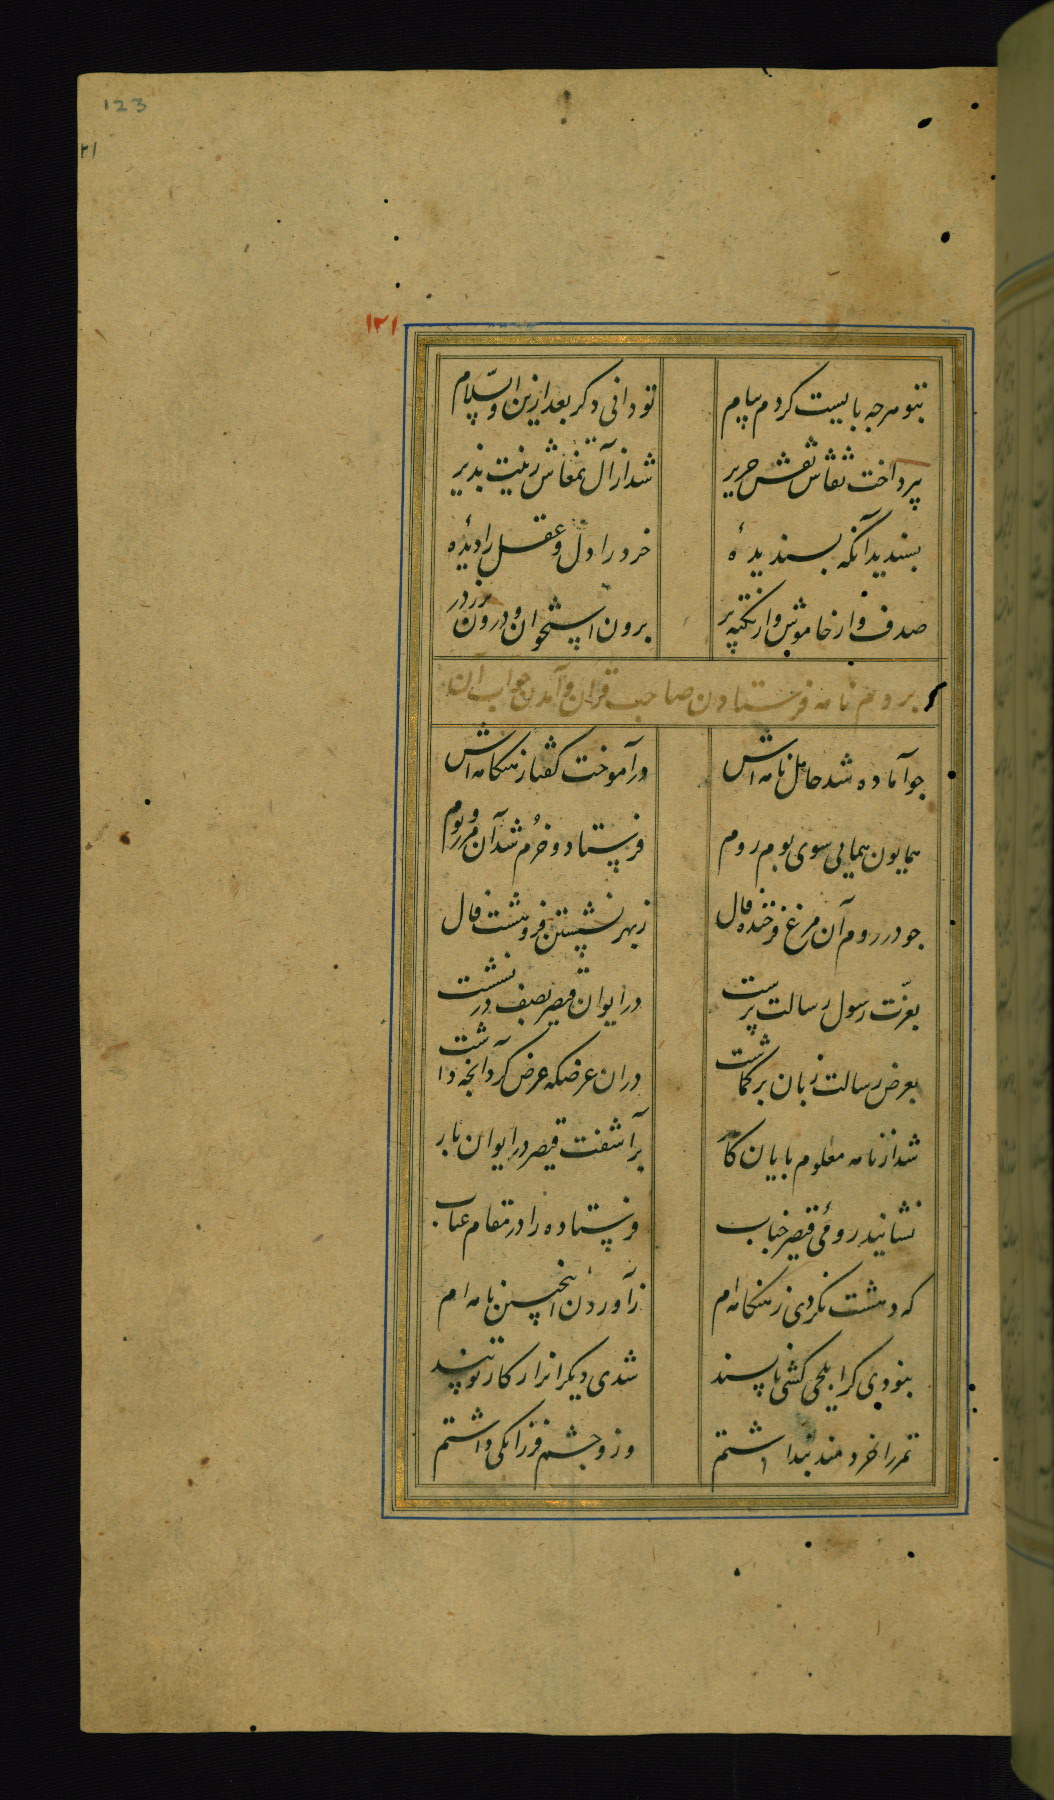 123
۱۲۱
بتو هرچه بایست کردم پیام
تو دانی دکر بعد ازین والسّلام
بپرداخت نقاش نقش حریر
شد از آل تمغاش زینت پذیر
پسندید آنکه پسندیدهٔ
خرد را دل و عقل را دیدهٔ
صدف وار خاموش و از نکته پر
برون استخوان و درون پر ز در
بروم نامه فرستادن صاحب قران و آمدن جواب آن
جو آماده شد حامل نامه اش
درآموخت کفتار هنکامه اش
همایون همایی سوی بوم روم
فرستاد و خرّم شد آن مرز و بوم
جو در روم آن مرغ فرخنده فال
ز بهر نشستن فرو هشت بال
بعزّت رسول رسالت پرست
در ایوان قیصر بصف در نشست
بعرض رسالت زبان برکماشت
دران عرضکه عرض کرد آنچه داشت
شد از نامه معلوم پایان کار
برآشفت قیصر در ایوان بار
نشانید رومی قیصر خباب
فرستاده را در مقام عتاب
که دهشت نکردی ز هنکامه ام
ز آوردن اینچنین نامه ام
نبودی کر ایلچی کشی ناپسند
شدی دیکرانرا ز کار تو پند
تمر را خردمند پنداشتم
وزو چشم فرزانکی داشتم